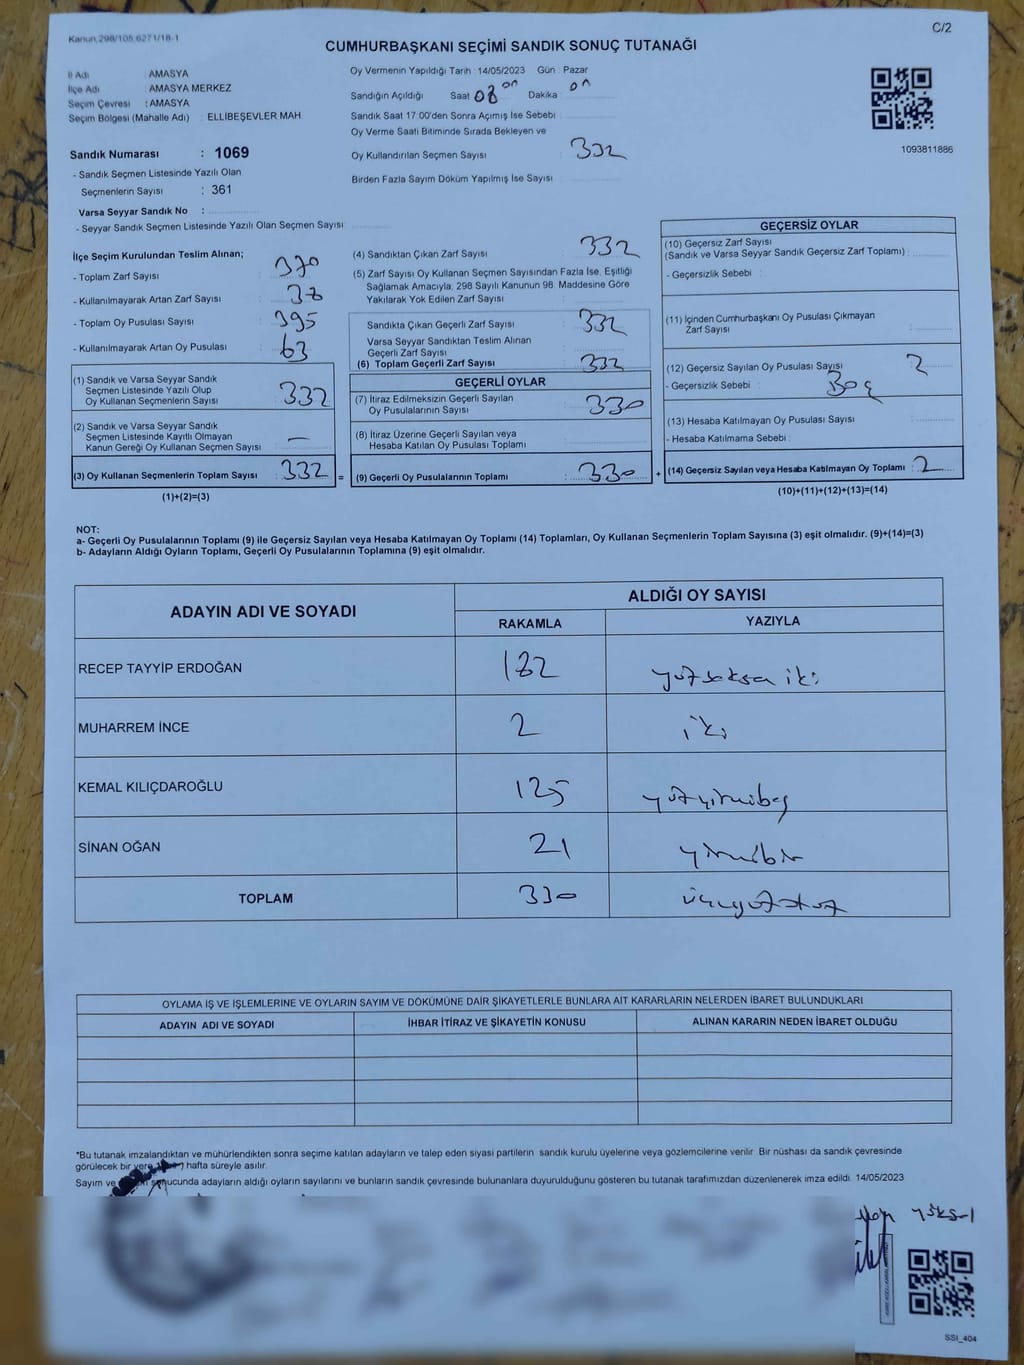 Kanun 298/105 6271/18-1
C/2
CUMHURBAŞKANI SEÇİMİ SANDIK SONUÇ TUTANAĞI
İl Adı : AMASYA
İlçe Adı : AMASYA MERKEZ
Seçim Çevresi : AMASYA
Seçim Bölgesi (Mahalle Adı) : ELLİBEŞEVLER MAH
Sandık Numarası : 1069
- Sandık Seçmen Listesinde Yazılı Olan
Seçmenlerin Sayısı : 361
Varsa Seyyar Sandık No :
- Seyyar Sandık Seçmen Listesinde Yazılı Olan Seçmen Sayısı
Oy Vermenin Yapıldığı Tarih : 14/05/2023 Gün : Pazar
Sandığın Açıldığı Saat 08 Dakika
Sandık Saat 17:00'den Sonra Açımış İse Sebebi
Oy Verme Saati Bitiminde Sırada Bekleyen ve
Oy Kullandırılan Seçmen Sayısı : 332
Birden Fazla Sayım Döküm Yapılmış İse Sayısı
1093811886
İlçe Seçim Kurulundan Teslim Alınan;
- Toplam Zarf Sayısı : 370
- Kullanılmayarak Artan Zarf Sayısı : 38
- Toplam Oy Pusulası Sayısı : 395
- Kullanılmayarak Artan Oy Pusulası : 63
(1) Sandık ve Varsa Seyyar Sandık
Seçmen Listesinde Yazılı Olup
Oy Kullanan Seçmenlerin Sayısı : 332
(2) Sandık ve Varsa Seyyar Sandık
Seçmen Listesinde Kayıtlı Olmayan
Kanun Gereği Oy Kullanan Seçmen Sayısı : —
(3) Oy Kullanan Seçmenlerin Toplam Sayısı : 332 =
(1)+(2)=(3)
(4) Sandıktan Çıkan Zarf Sayısı : 332
(5) Zarf Sayısı Oy Kullanan Seçmen Sayısından Fazla İse, Eşitliği
Sağlamak Amacıyla, 298 Sayılı Kanunun 98. Maddesine Göre
Yakılarak Yok Edilen Zarf Sayısı :
Sandıkta Çıkan Geçerli Zarf Sayısı : 332
Varsa Seyyar Sandıktan Teslim Alınan
Geçerli Zarf Sayısı
(6) Toplam Geçerli Zarf Sayısı : 332
GEÇERLİ OYLAR
(7) İtiraz Edilmeksizin Geçerli Sayılan
Oy Pusulalarının Sayısı : 330
(8) İtiraz Üzerine Geçerli Sayılan veya
Hesaba Katılan Oy Pusulası Toplamı :
(9) Geçerli Oy Pusulalarının Toplamı : 330 +
GEÇERSİZ OYLAR
(10) Geçersiz Zarf Sayısı
(Sandık ve Varsa Seyyar Sandık Geçersiz Zarf Toplamı) :
- Geçersizlik Sebebi :
(11) İçinden Cumhurbaşkanı Oy Pusulası Çıkmayan
Zarf Sayısı :
(12) Geçersiz Sayılan Oy Pusulası Sayısı : 2
- Geçersizlik Sebebi : Boş
(13) Hesaba Katılmayan Oy Pusulası Sayısı :
- Hesaba Katılmama Sebebi :
(14) Geçersiz Sayılan veya Hesaba Katılmayan Oy Toplamı : 2
(10)+(11)+(12)+(13)=(14)
NOT:
a- Geçerli Oy Pusulalarının Toplamı (9) ile Geçersiz Sayılan veya Hesaba Katılmayan Oy Toplamı (14) Toplamları, Oy Kullanan Seçmenlerin Toplam Sayısına (3) eşit olmalıdır. (9)+(14)=(3)
b- Adayların Aldığı Oyların Toplamı, Geçerli Oy Pusulalarının Toplamına (9) eşit olmalıdır.
ADAYIN ADI VE SOYADI
ALDIĞI OY SAYISI
RAKAMLA YAZIYLA
RECEP TAYYİP ERDOĞAN 182 yüzseksen iki
MUHARREM İNCE 2 iki
KEMAL KILIÇDAROĞLU 125 yüzyirmibeş
SİNAN OĞAN 21 yirmibir
TOPLAM 330 üçyüzotuz
OYLAMA İŞ VE İŞLEMLERİNE VE OYLARIN SAYIM VE DÖKÜMÜNE DAİR ŞİKAYETLERLE BUNLARA AİT KARARLARIN NELERDEN İBARET BULUNDUKLARI
ADAYIN ADI VE SOYADI İHBAR İTİRAZ VE ŞİKAYETİN KONUSU ALINAN KARARIN NEDEN İBARET OLDUĞU
*Bu tutanak imzalandıktan ve mühürlendikten sonra seçime katılan adayların ve talep eden siyasi partilerin sandık kurulu üyelerine veya gözlemcilerine verilir. Bir nüshası da sandık çevresinde
görülecek bir yere hafta süreyle asılır.
Sayım ve sonucunda adayların aldığı oyların sayılarını ve bunların sandık çevresinde bulunanlara duyurulduğunu gösteren bu tutanak tarafımızdan düzenlenerek imza edildi. 14/05/2023
SSI_404